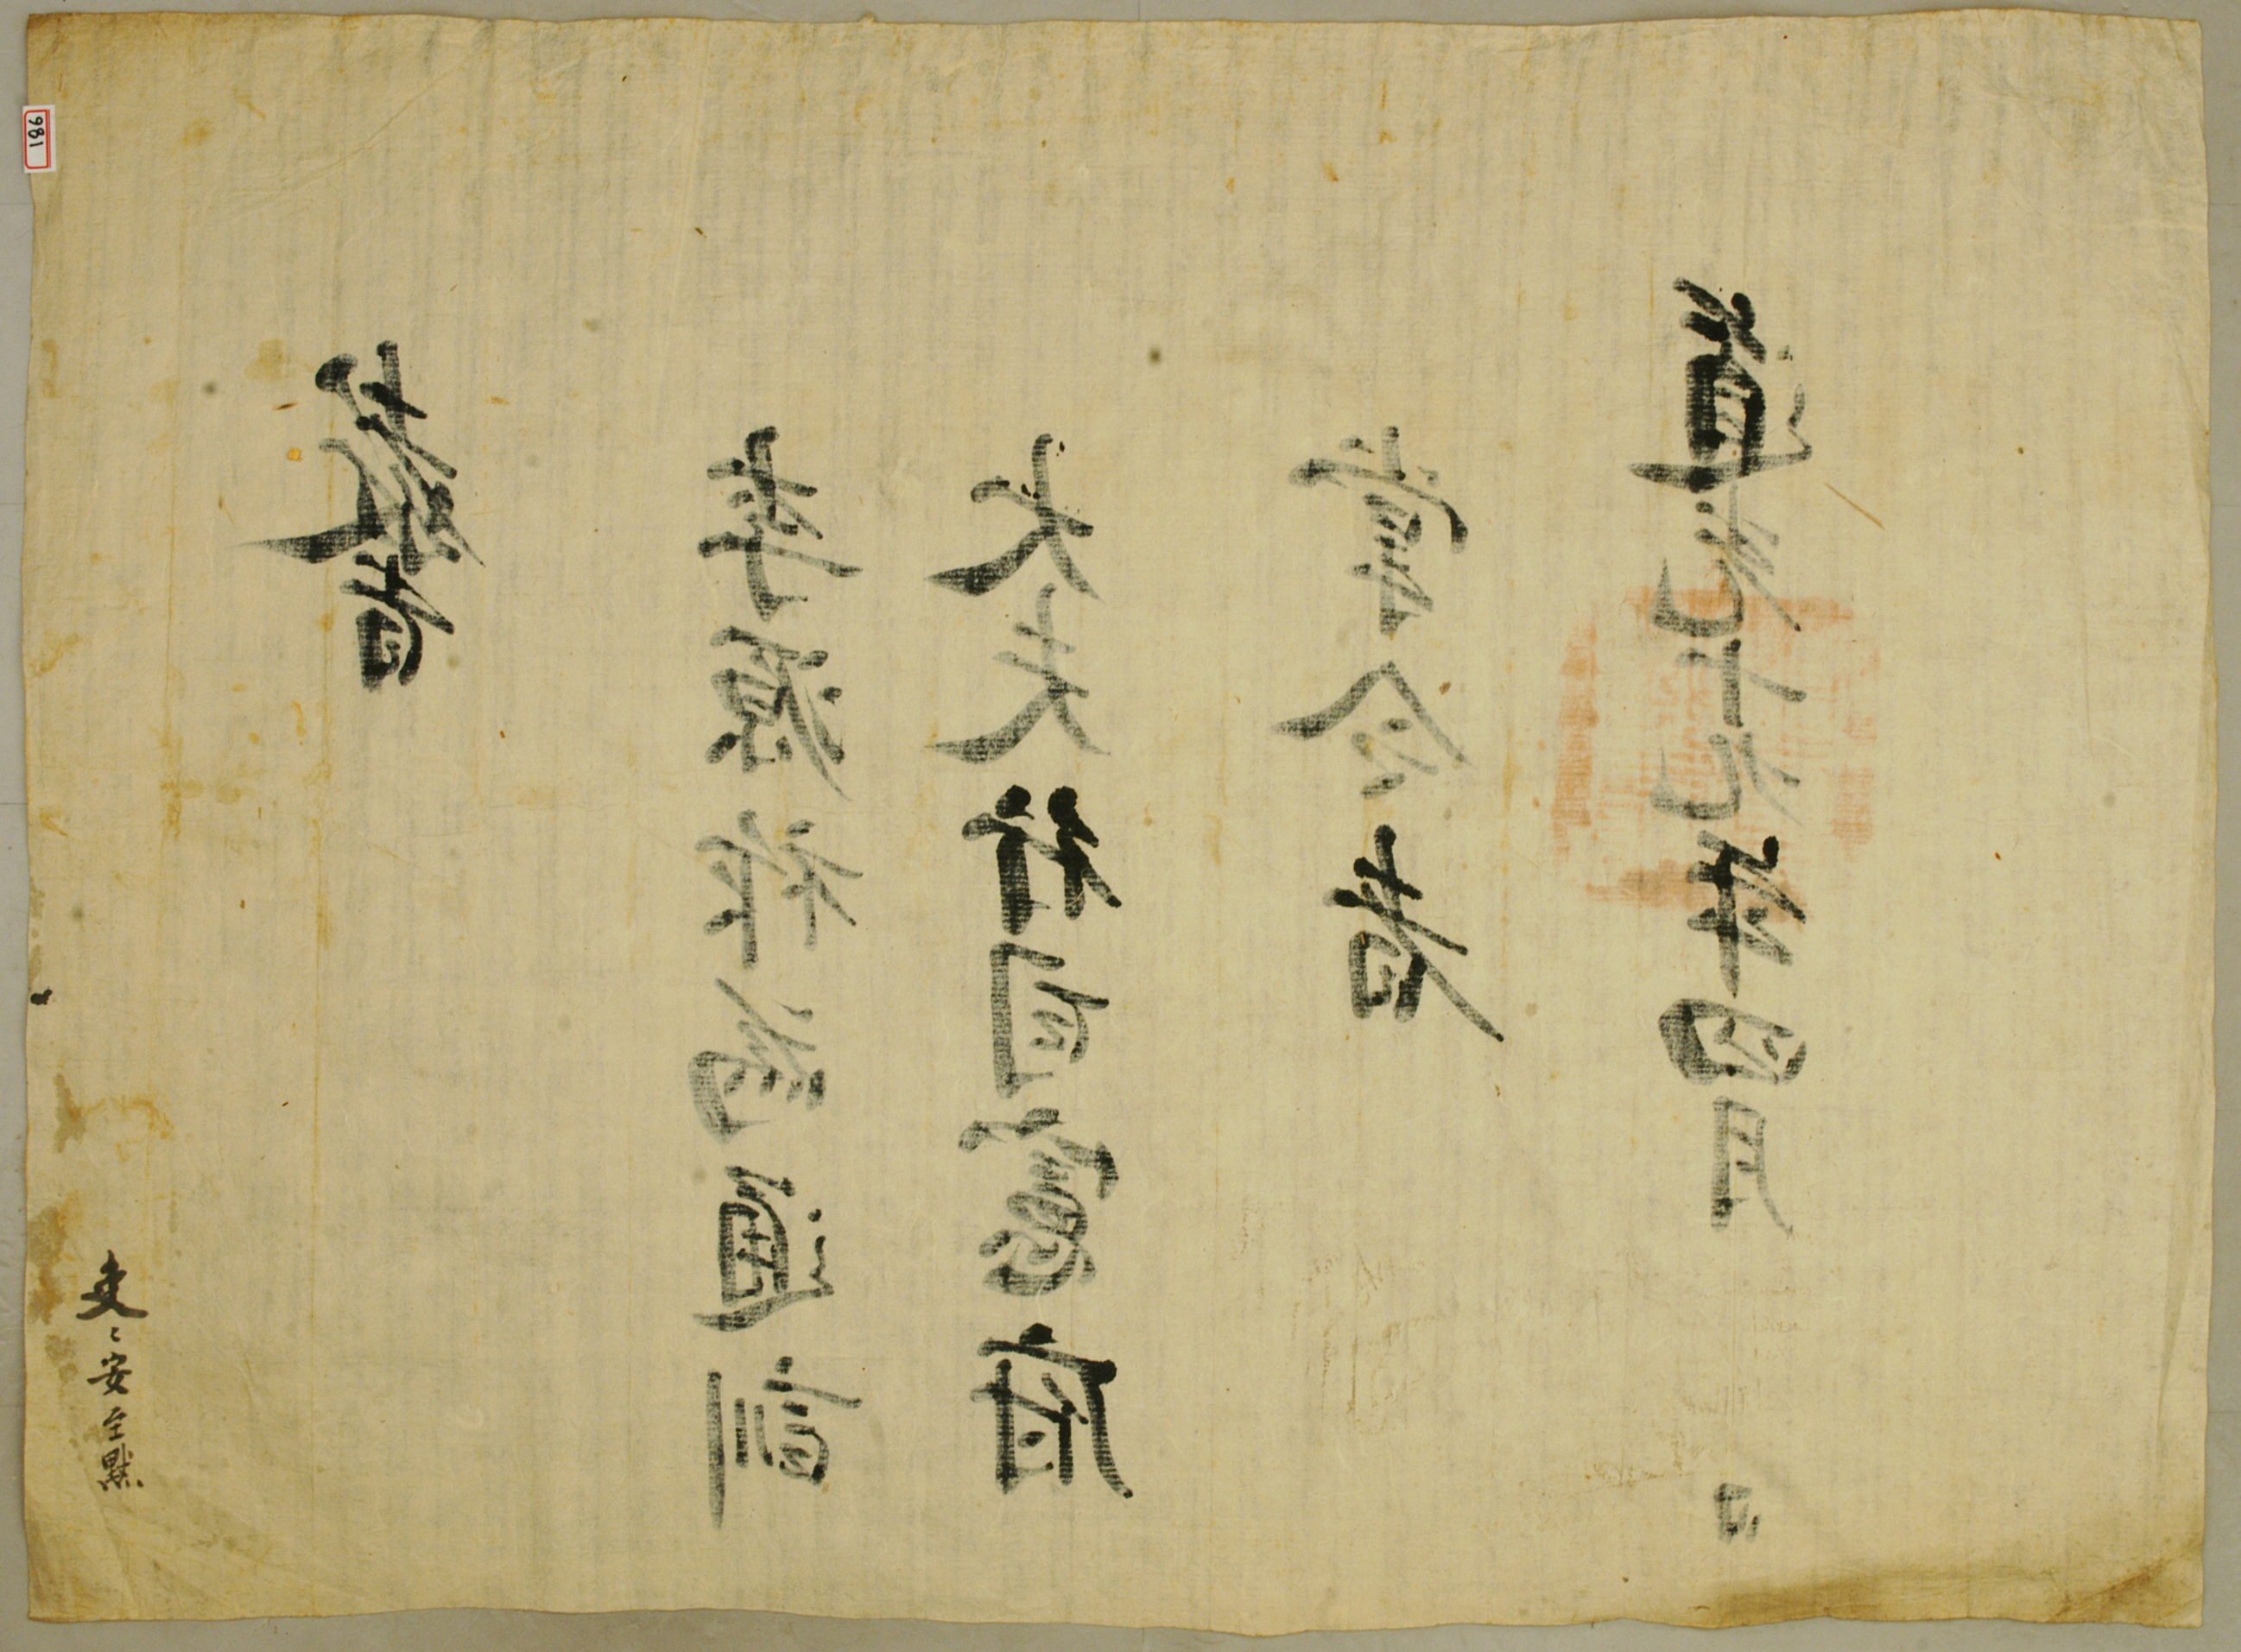 敎旨
李源祚爲通訓
大夫行司憲府
掌令者
道光十九年四月 日
吏〻安全默
981